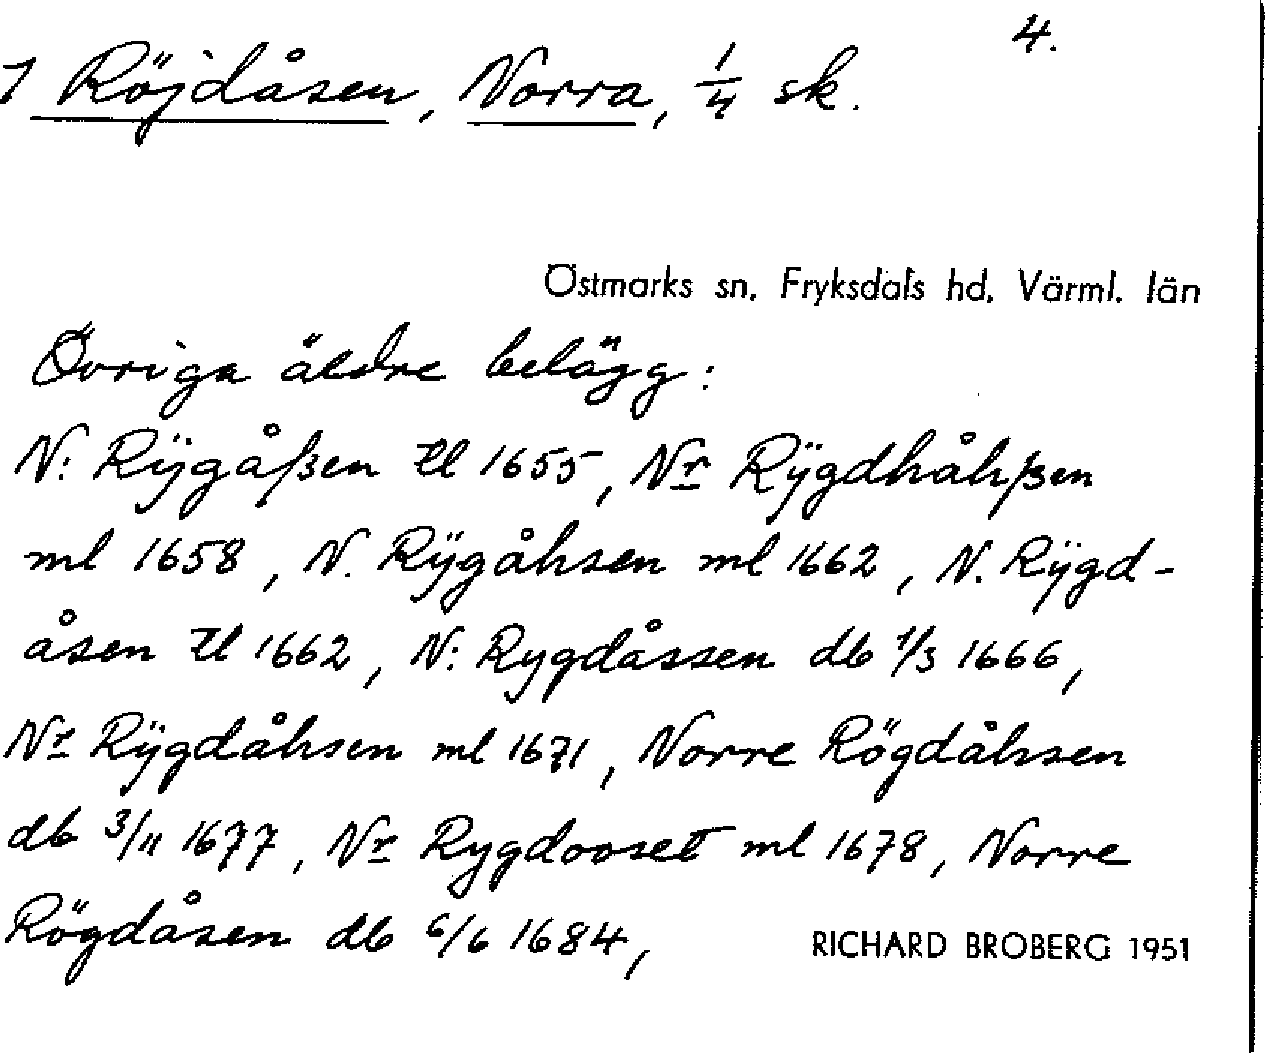 4.
7 Röjdåsen, Norra, 1/4 sk.
Östmarks sn. Fryksdals hd. Värml. län
Övriga äldre belägg:
N: Rÿgåßen tl 1655, Nr Rÿgdhåhßen
ml 1658, N. Rÿgåhsen ml 1662, N. Rÿgd-
åsen tl 1662, N: Rygdåssen db 1/3 1666,
Nr Rÿgdåhsen ml 1671, Norre Rögdåhsen
db 3/11 1677, Nr Rygdooset ml 1678, Norre
Rögdåsen db 6/6 1684,
RICHARD BROBERG 1951